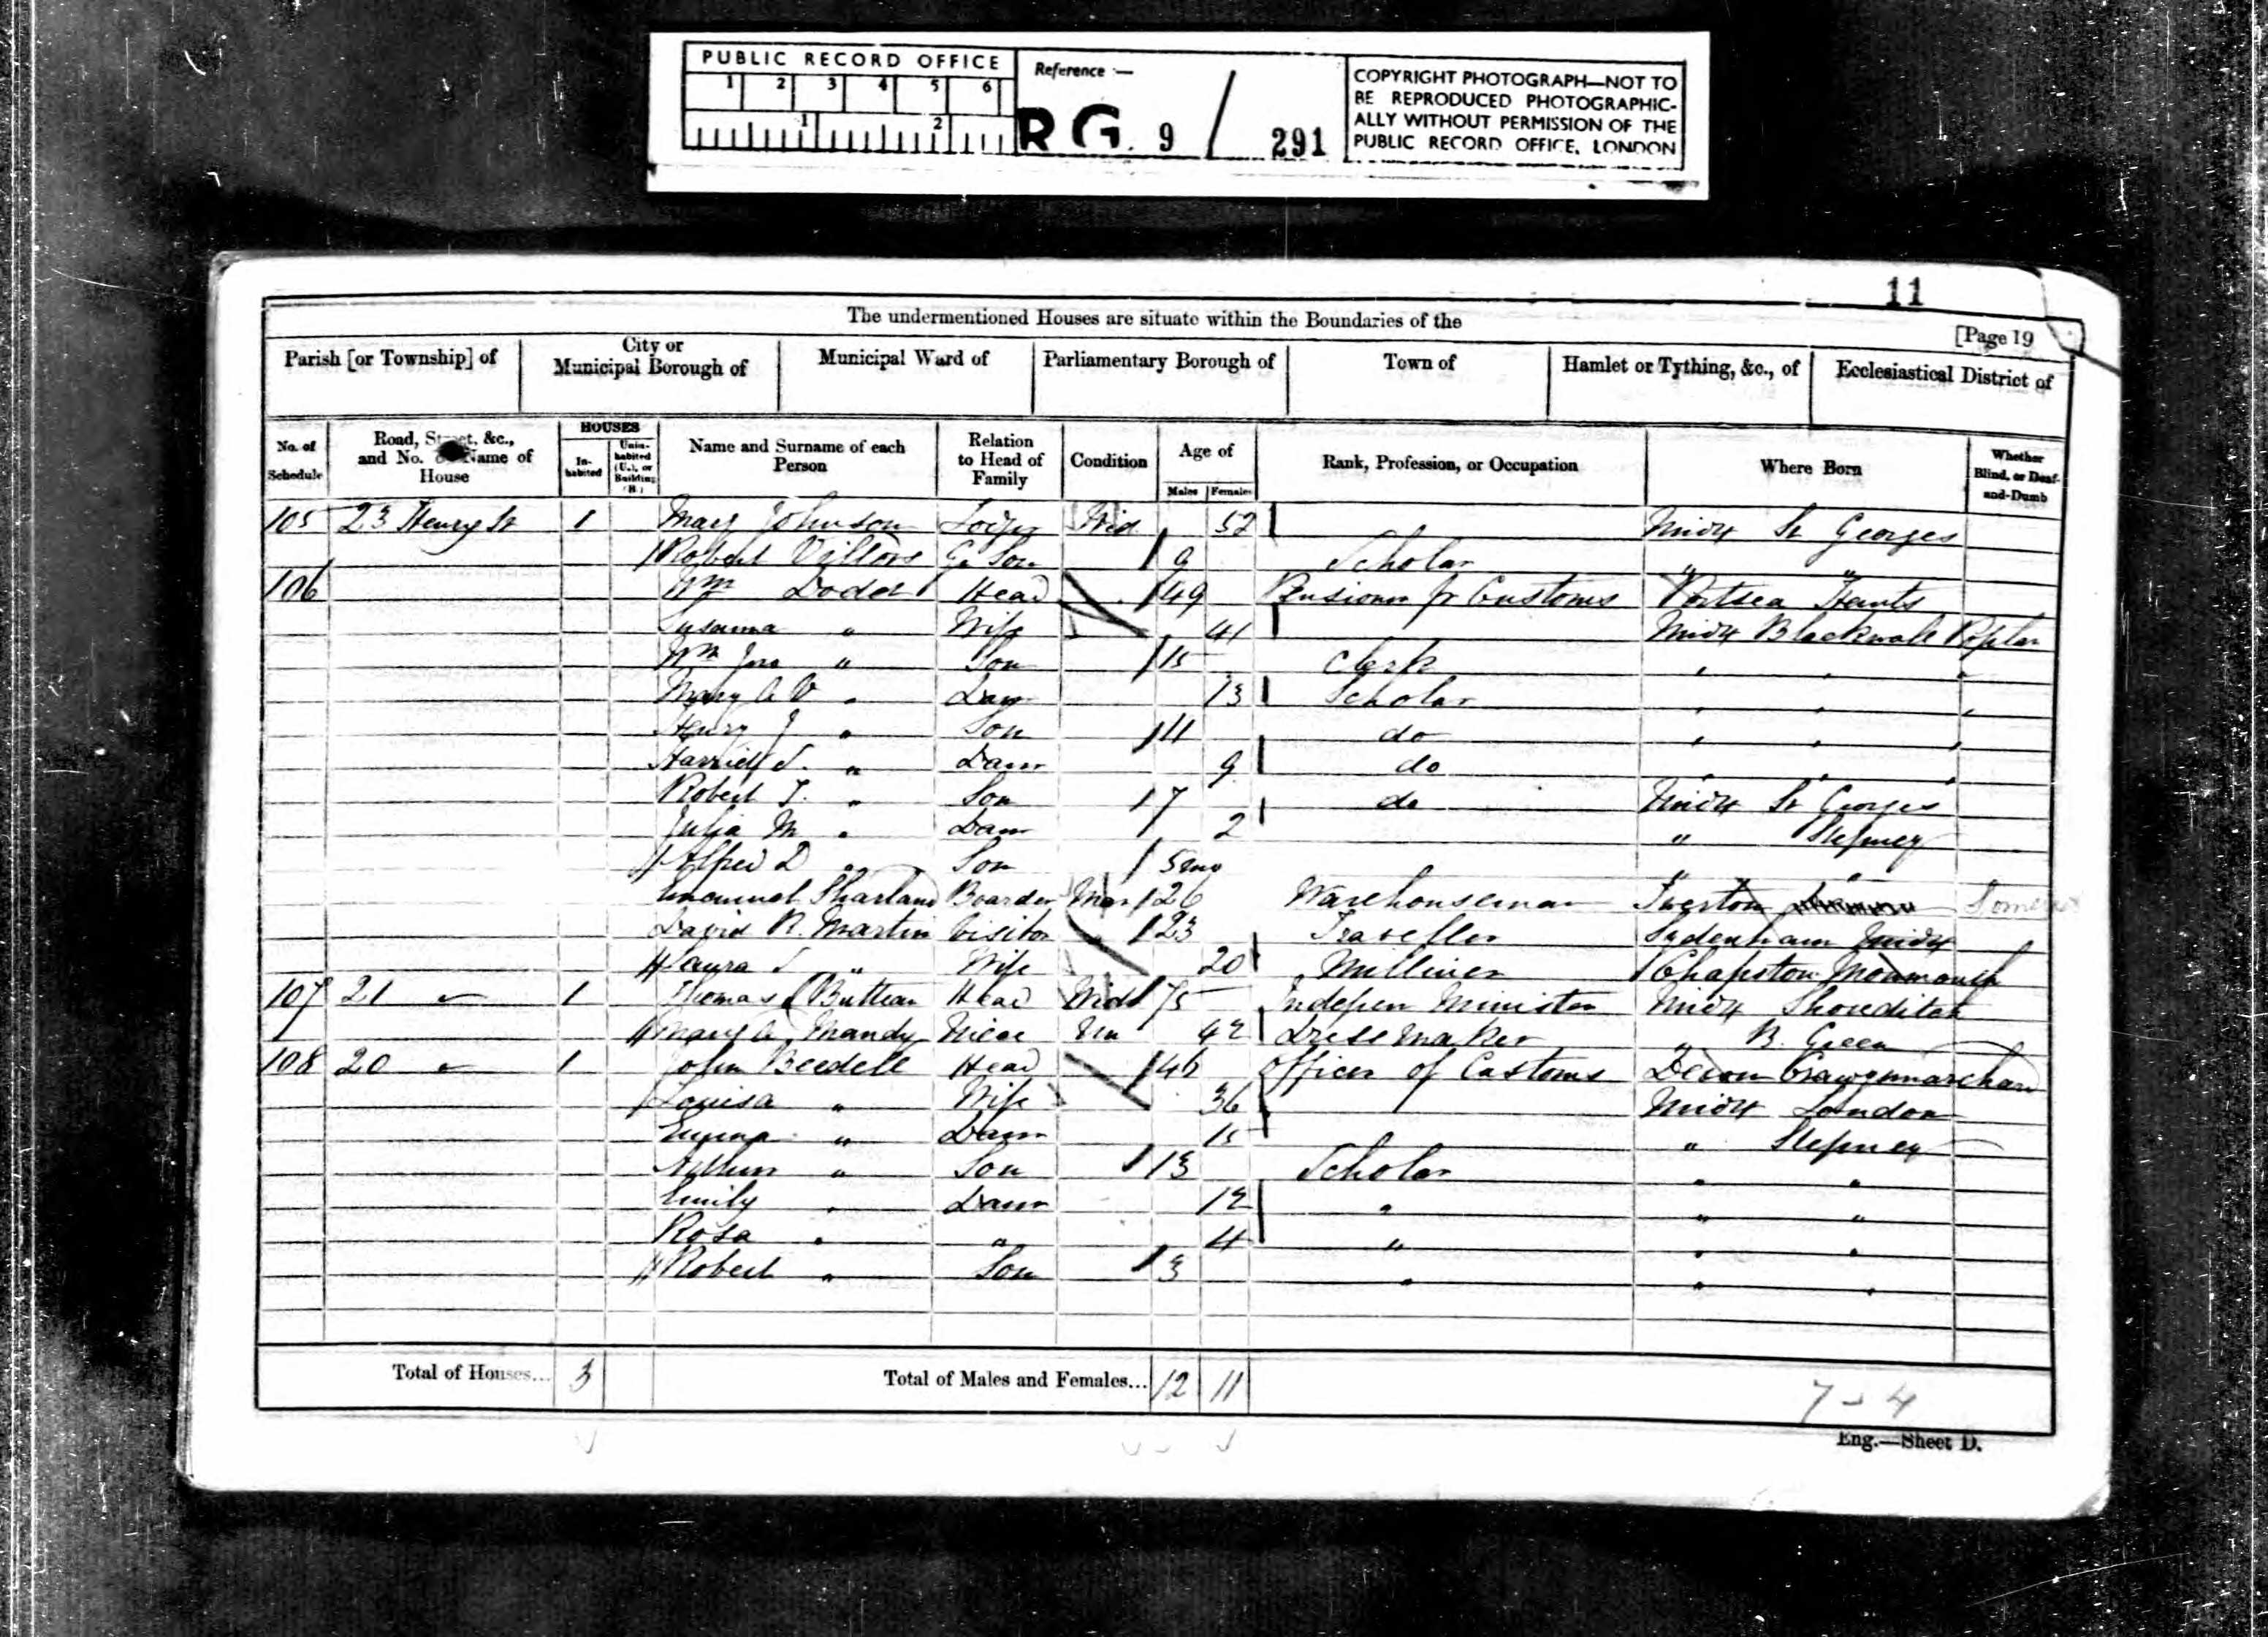 PUBLIC RECORD OFFICE
1 2 3 4 5 6
1 2
Reference :—
RG. 9 / 291
COPYRIGHT PHOTOGRAPH—NOT TO
BE REPRODUCED PHOTOGRAPHIC-
ALLY WITHOUT PERMISSION OF THE
PUBLIC RECORD OFFICE, LONDON
11
The undermentioned Houses are situate within the Boundaries of the
[Page 19
Parish [or Township] of City or Municipal Borough of Municipal Ward of Parliamentary Borough of Town of Hamlet or Tything, &c., of Ecclesiastical District of
No. of Schedule Road, Street, &c., and No. or Name of House HOUSES In-habited Unin-habited (U.), or Building (B.) Name and Surname of each Person Relation to Head of Family Condition Age of Males Females Rank, Profession, or Occupation Where Born Whether Blind, or Deaf-and-Dumb
105 23 Henry St 1 Mary Johnson Wid 52 Midx St Georges
Robert Gr Son 9 Scholar " "
106 Wm Dodd Head 49 Customs Portsea Hants
Susanna " Wife 41 Midx Blackwall Poplar
Wm Jno " Son 15 Clerk " " "
Mary A V " Daur 13 Scholar " " "
Henry J " Son 11 do " " "
Harriet S. " Daur 9 do " " "
Robert T. " Son 7 do Midx St Georges
Julia M " Daur 2 " Stepney
Alfred D " Son 5 mo " "
Emanuel Sharland Boarder Mar 26 Warehouseman Somerset
David R. Martin Visitor 23 Traveller Sydenham
Laura S " Wife 20 Milliner Chepstow Monmouth
107 21 " 1 Thomas Head Widr 75 Indepen Minister Midx Shoreditch
Mary A Mandy Niece Un 42 Dressmaker " B. Green
108 20 " 1 John Beedell Head 46 Officer of Customs Devon
Louisa " Wife 36 Midx London
Emma " Daur 15 " Stepney
" Son 13 Scholar " "
Emily " Daur 12 " " "
Rosa " " 4 " " "
Robert " Son 3 " " "
Total of Houses... 3 Total of Males and Females... 12 11
7 - 4
Eng.—Sheet D.